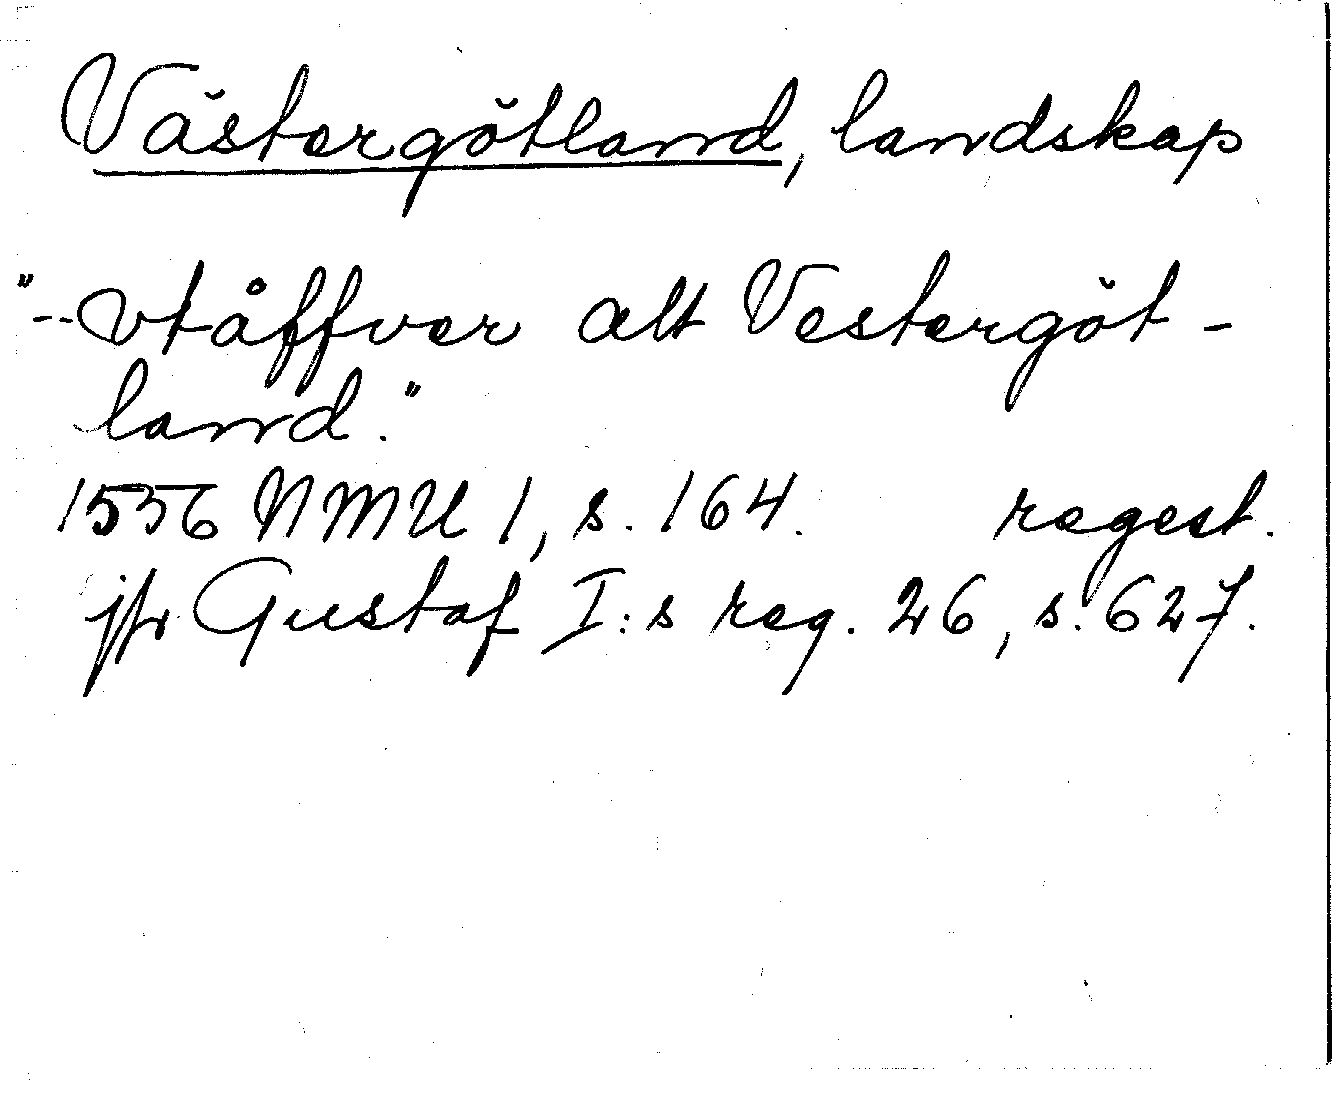 Västergötland, landskap
"-- vtåffver alt Vestergöt-
land."
1556 NMU 1, s. 164. regest.
jfr Gustaf I:s reg. 26, s. 627.